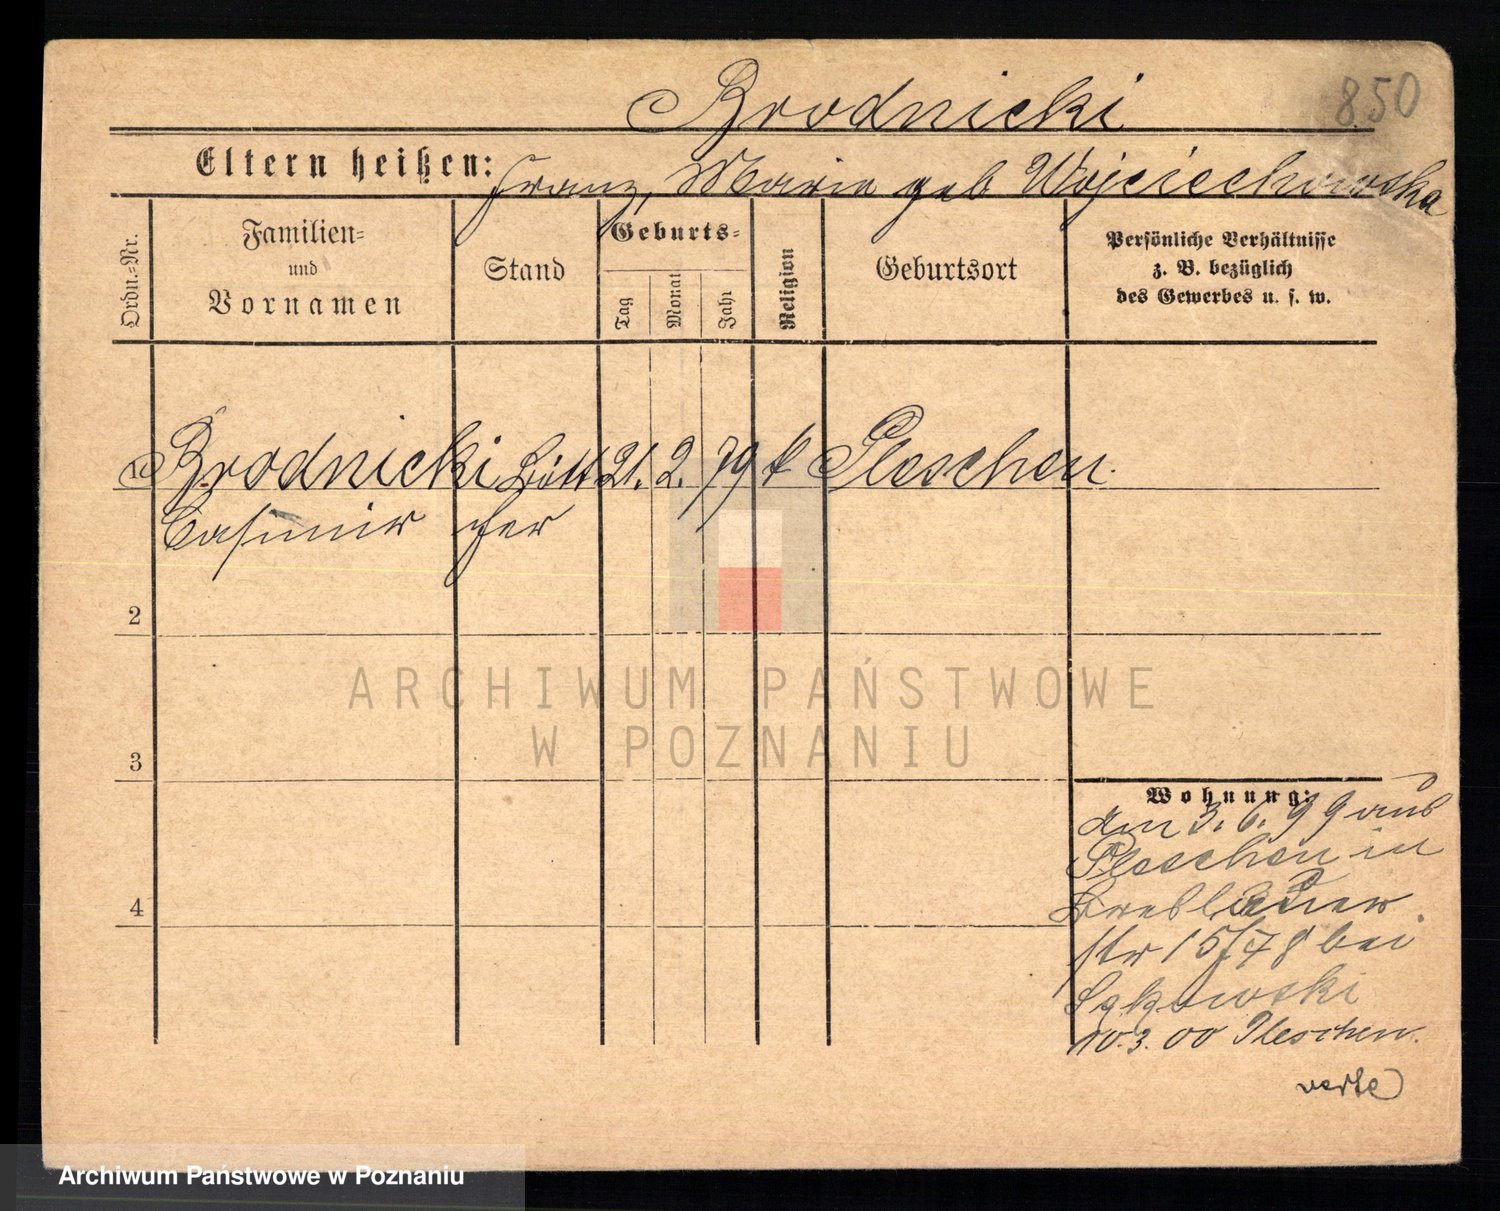 Brodnicki 850
Eltern heißen: Franz, Maria geb Wojciechowska
Ordn.-Nr.
Familien- und Vornamen
Stand
Geburts-
Tag
Monat
Jahr
Religion
Geburtsort
Persönliche Verhältnisse
z. B. bezüglich
des Gewerbes u. s. w.
1 Brodnicki Bött 21. 2. 79 k Pleschen.
Casimir cher
2
3
4
Wohnung:
am 3. 6. 99 aus
Pleschen in
str 15/78 bei
10.3.00 Pleschen.
verte
ARCHIWUM PAŃSTWOWE
W POZNANIU
Archiwum Państwowe w Poznaniu